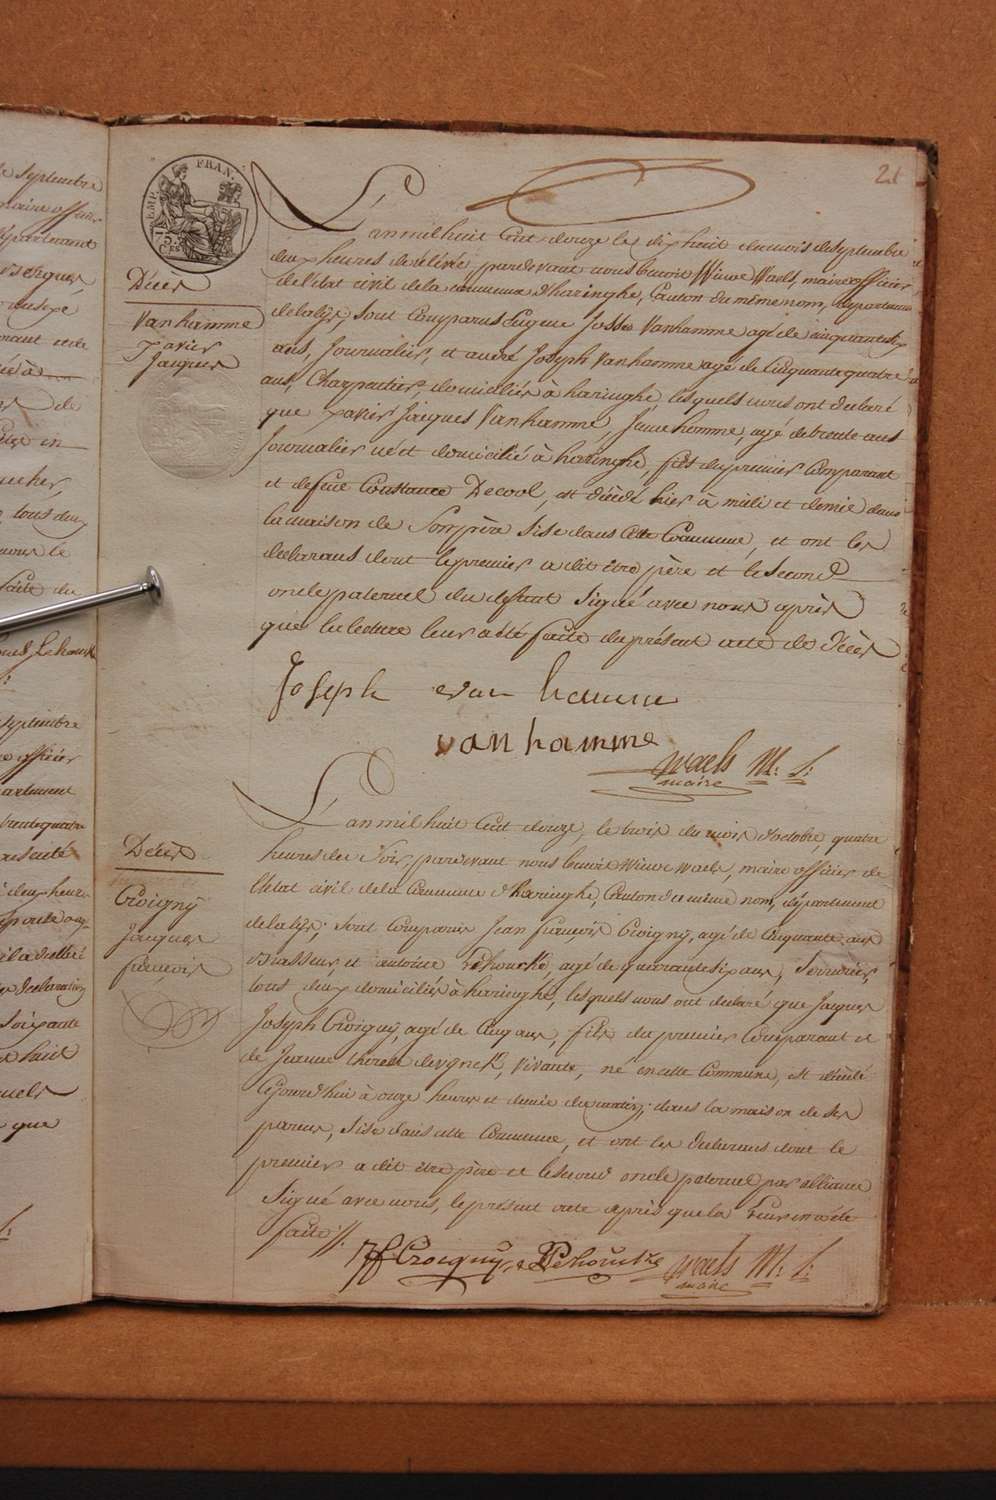 21
TIMP. FRAN.
Décès
Vanhamme
Xavier
Jacques
L'an mil huit Cent douze le dix huit du mois de septembre
deux heures de relevée, pardevant nous benoit Winoc Waels, maire officier
de l'état civil de la commune d'haringhe, Canton du même nom, département
de la lijs, sont Comparus Eugene Josse Vanhamme agé de cinquante six
ans, Journalier, et andré Joseph Vanhamme agé de Cinquante quatre
ans, Charpentier, domiciliés à haringhe lesquels nous ont declaré
que Xavier Jacques Vanhamme, Jeune homme, agé de trente ans
Journalier né et domicilié à haringhe, fils du premier Comparant
et de feüe Constance Decool, est décédé hier à midi et demie dans
la maison de Son père Sise dans cette Commune, et ont les
declarans dont le premier a dit être père et le second
oncle paternel du defunt Signé avec nous après
que la lecture leur a été faite du présent acte de décès
Joseph van hamme
vanhamme
Waels M: S:
maire
Décès
Croigny
Jacques
françois
L'an mil huit Cent douze, le trois du mois d'octobre, quatre
heures du Soir, pardevant nous benoit Winoc Waels, maire officier de
l'état civil de la Commune d'Haringhe, Canton du même nom, département
de la lijs; sont Comparus Jean françois Croigny, agé de Cinquante ans
Brasseur, et antoine Dehoucke, agé de quarante six ans, Serrurier,
tous deux domiciliés à haringhe, lesquels nous ont declaré que Jacques
Joseph Croigny, agé de Cinq ans, fils du premier Comparant et
de Jeanne therese devynck, vivante, né en cette Commune, est décédé
Cejourd'hui à onze heures et demie du matin; dans la maison de ses
parens, Sise dans cette Commune, et ont les declarans dont le
premier a dit être père et le second oncle paternel par alliance
Signé avec nous, le présent acte après que la leur en a été
faite //.
JF Croigny Dehoucke Waels M: S:
maire